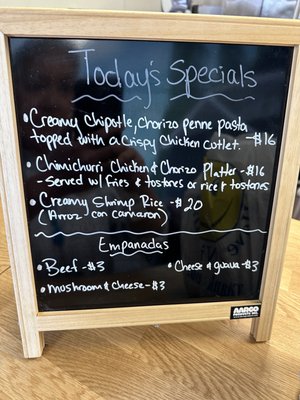 Today's Specials
• Creamy chipotle, chorizo penne pasta
topped with a Crispy Chicken cutlet. -$16
• Chimichurri Chicken & Chorizo Platter -$16
- Served w/ fries & tostones or rice & tostones
• Creamy Shrimp Rice -$20
(Arroz con camaron)
Empanadas
• Beef -$3
• Cheese & guava -$3
• Mushroom & Cheese -$3
AARCO